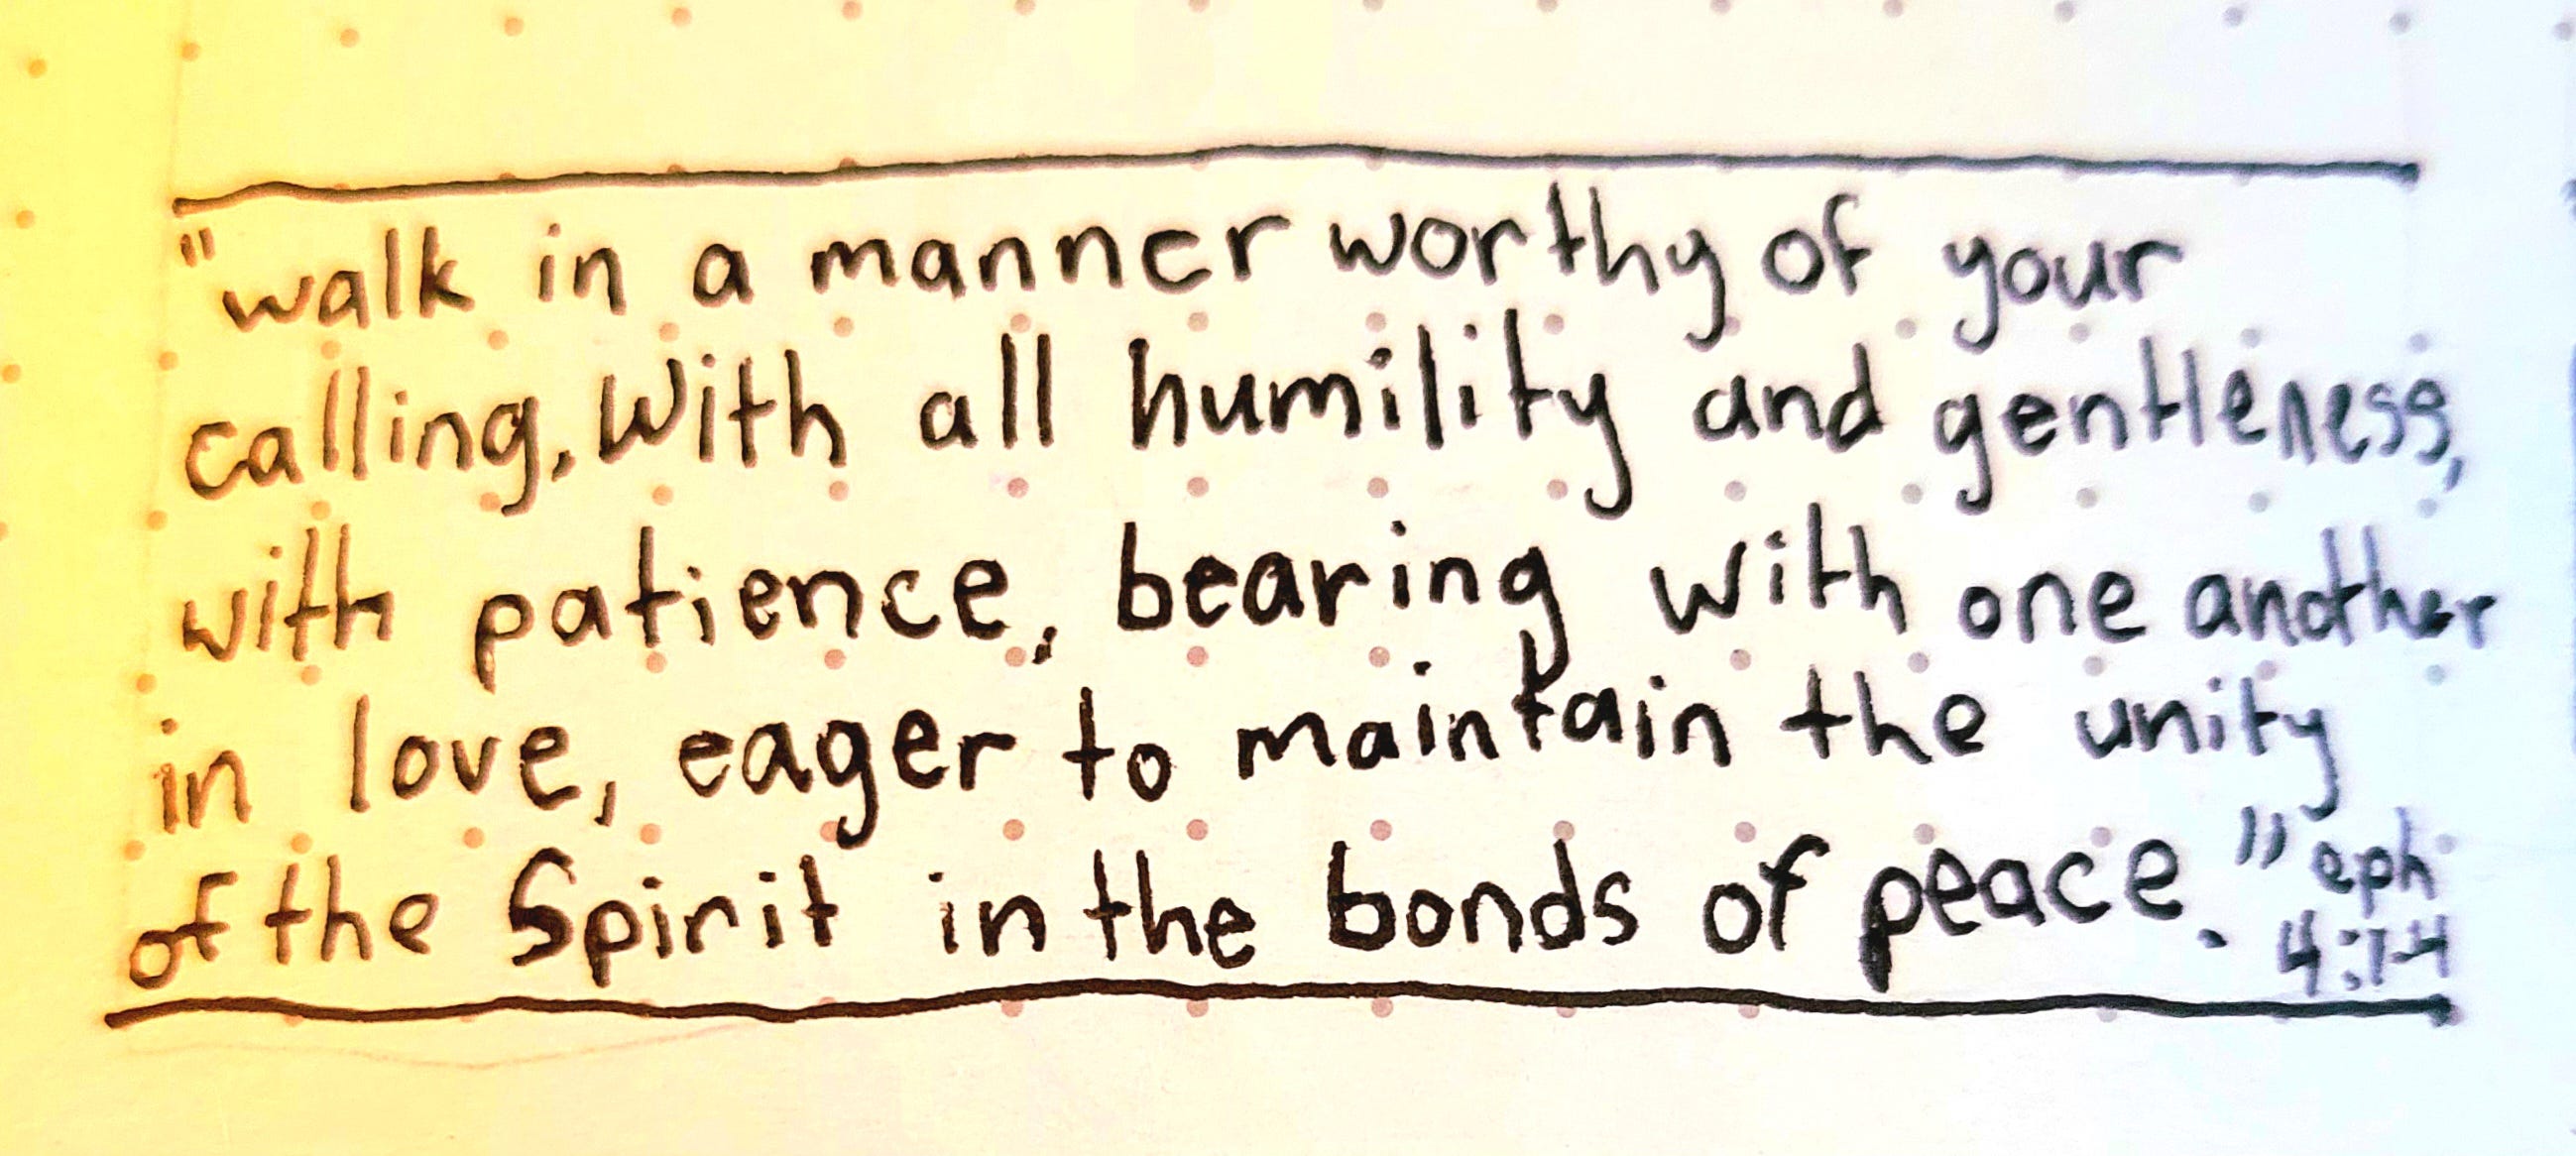 "walk in a manner worthy of your
calling. With all humility and gentleness,
with patience, bearing with one another
in love, eager to maintain the unity
of the Spirit in the bonds of peace." eph
4:1-4